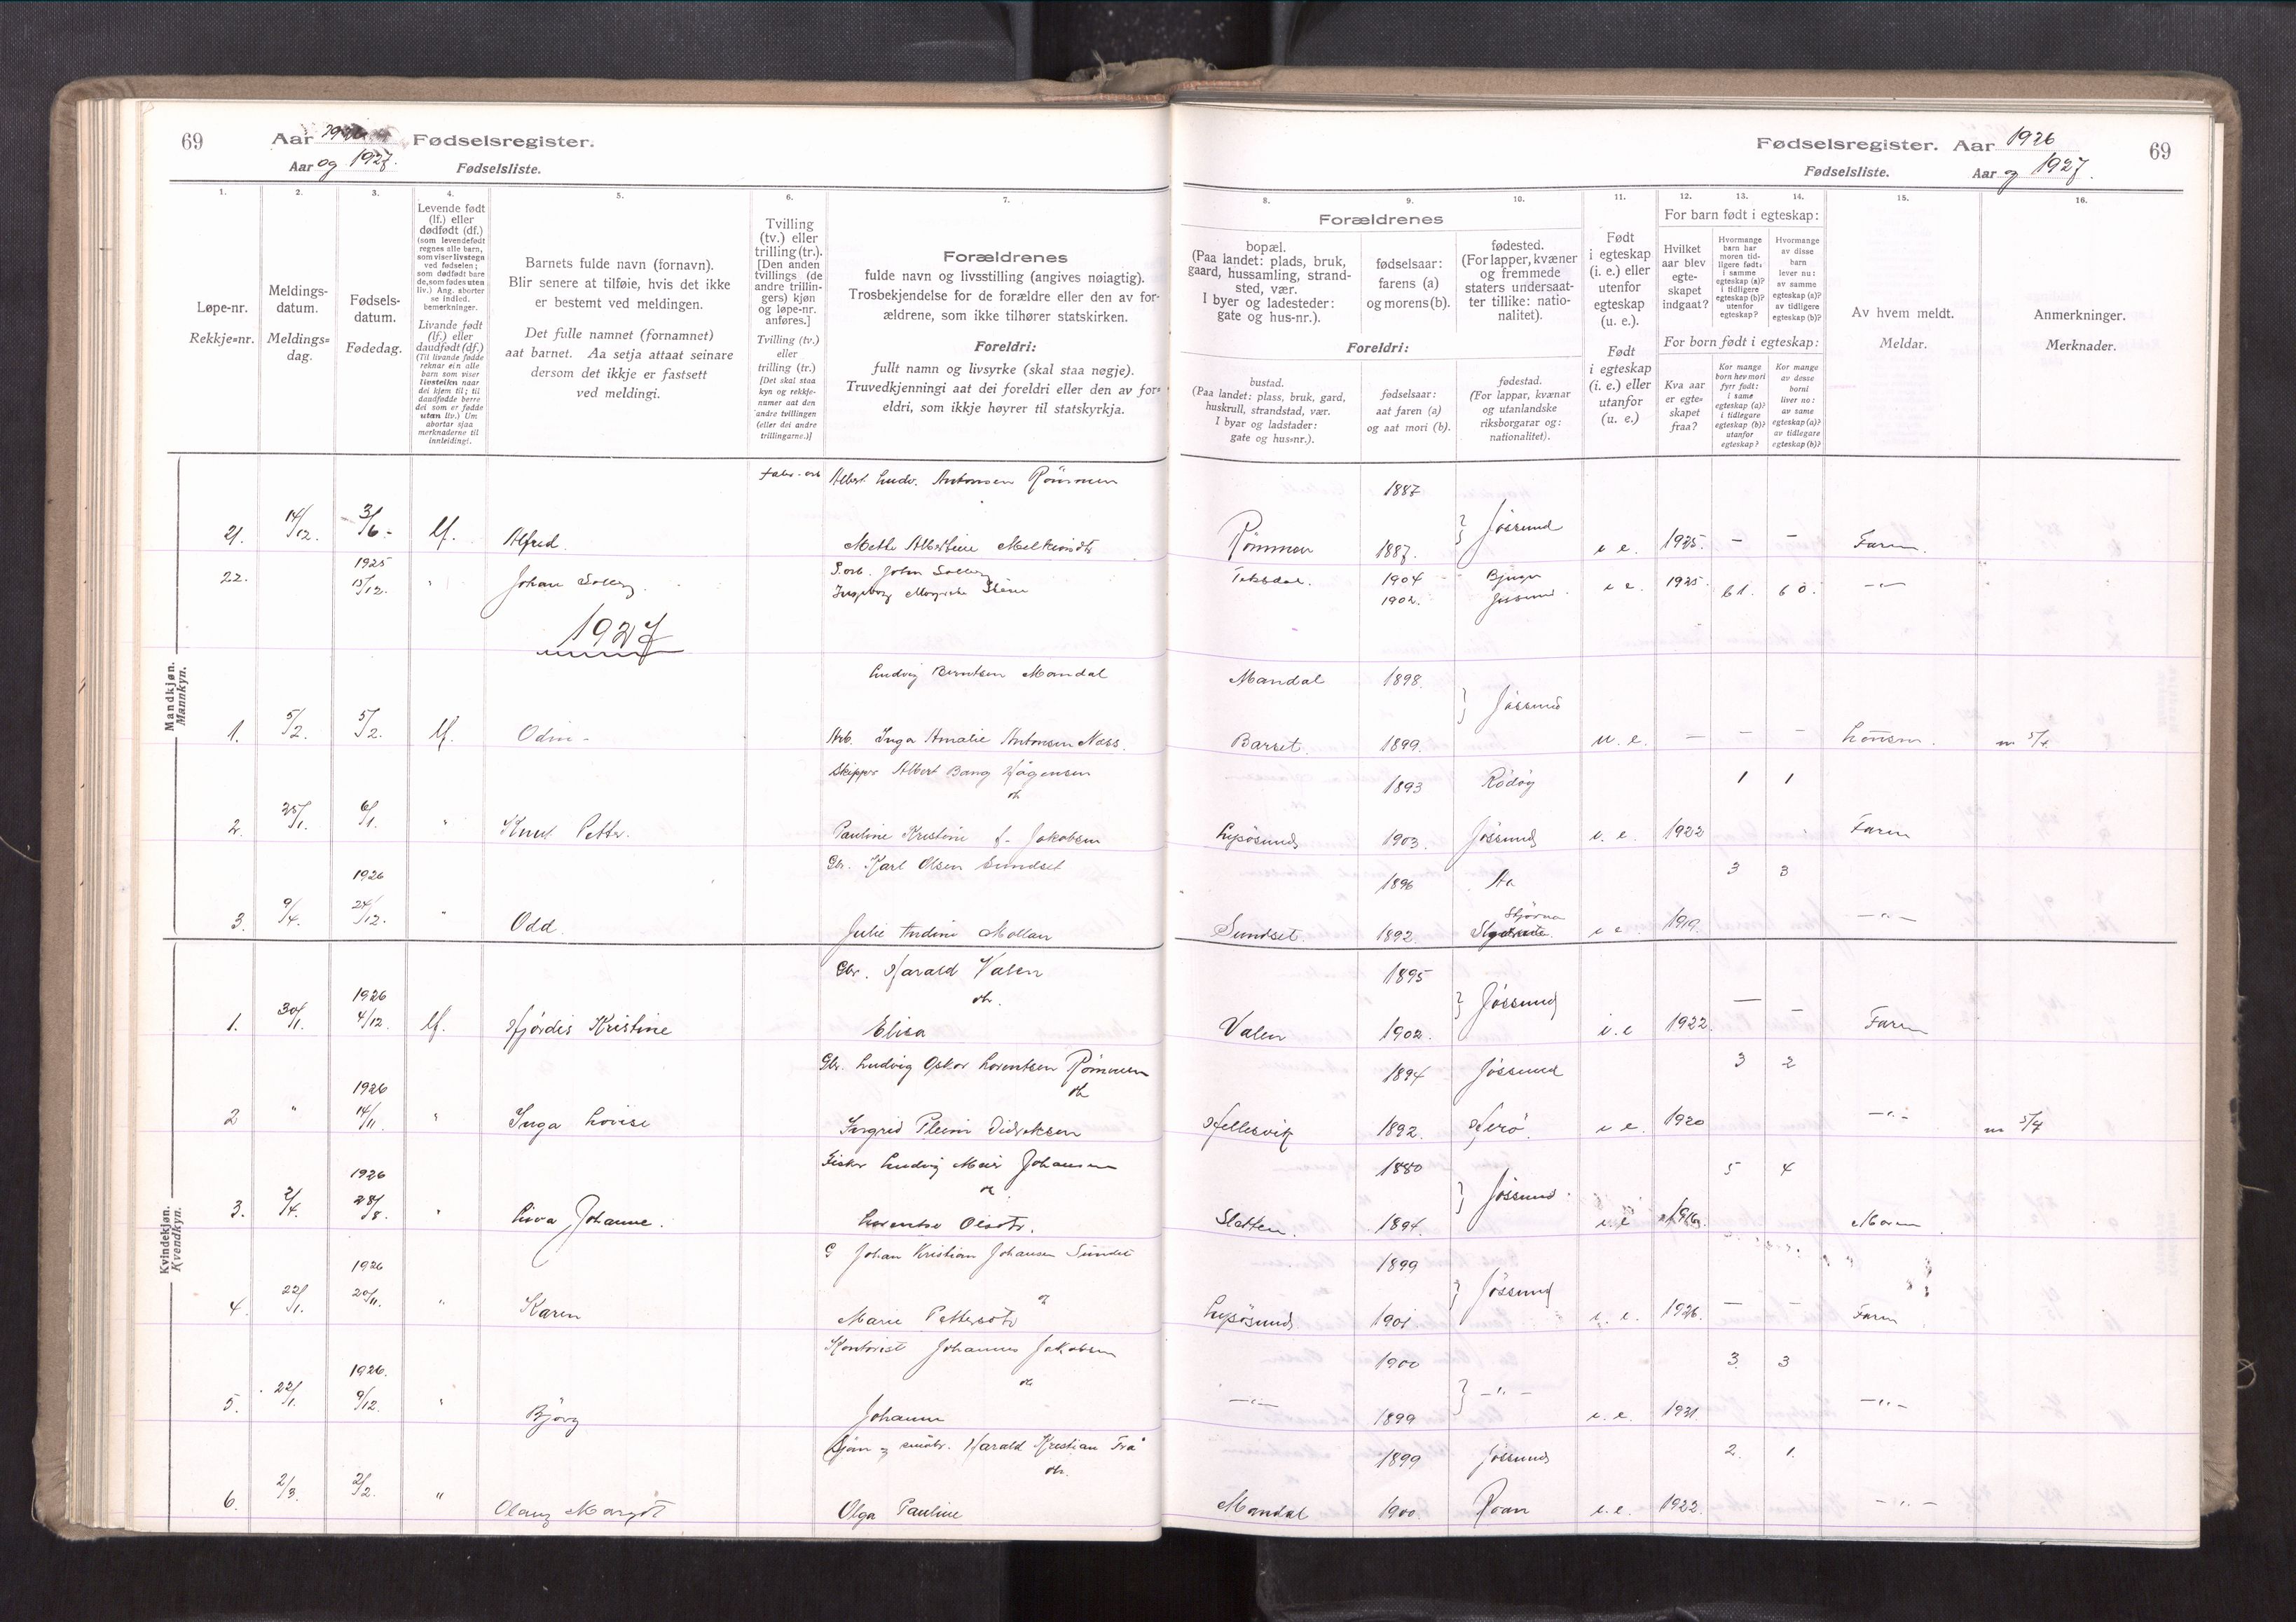 69
Aar 1926 Fødselsregister.
Aar og 1927. Fødselsliste.
1. 2. 3. 4. 5. 6. 7.
Løpe-nr.
Rekkje=nr.
Meldings-
datum.
Meldings=
dag.
Fødsels-
datum.
Fødedag.
Levende født
(lf.) eller
dødfødt (df.)
(som levendefødt
regnes alle barn,
som viser livstegn
ved fødselen;
som dødfødt bare
de, som fødes uten
liv.) Ang. aborter
se indled.
bemerkninger.
Livande født
(lf.) eller
daudfødt (df.)
(Til livande fødde
reknar ein alle
barn som viser
livsteikn naar
dei kjem til; til
daudfødde berre
dei som er fødde
utan liv.) Um
abortar sjaa
merknaderne til
innleidingi.
Barnets fulde navn (fornavn).
Blir senere at tilføie, hvis det ikke
er bestemt ved meldingen.
Det fulle namnet (fornamnet)
aat barnet. Aa setja attaat seinare
dersom det ikkje er fastsett
ved meldingi.
Tvilling
(tv.) eller
trilling (tr.).
[Den anden
tvillings (de
andre trillin-
gers) kjøn
og løpe-nr.
anføres.]
Tvilling (tv.)
eller
trilling (tr.)
[Det skal staa
kyn og rekkje-
numer aat den
andre tvillingen
(eller dei andre
trillingarne.)]
Forældrenes
fulde navn og livsstilling (angives nøiagtig).
Trosbekjendelse for de forældre eller den av for-
ældrene, som ikke tilhører statskirken.
Foreldri:
fullt namn og livsyrke (skal staa nøgje).
Truvedkjenningi aat dei foreldri eller den av for-
eldri, som ikkje høyrer til statskyrkja.
Mandkjøn.
Mannkyn.
Albert Ludv. Antonsen Rømmen
21. 14/12. 3/6 - lf. Alfred.
1925
22. 15/12. " Johan Solberg. John Solberg
1927
Ludvig Berntsen Mandal
1. 5/2. 5/2. lf. Odin - Arb. Inga Amalie Antonsen Næss.
Skipper Albert Bang Hågensen
2. 25/1. 6/1. " Knut Petter. Pauline Kristine f. Jakobsen
Gbr. Karl Olsen Sundset
1926
3. 9/4. 24/12. " Odd. Julie Andine Mollan
Kvindekjøn.
Kvendkyn.
Gbr. Harald Valen
1926
1. 30/1. 4/12. lf. Hjördis Kristine Elisa
Gbr. Ludvig Oskar Lorentsen Rømmen
1926
2 " 14/11. " Inga Lovise Ingrid Didriksen
Fisker Ludvig Johansen
1926
3. 2/4. 28/8. " Johanne. Olsdtr.
Johan Kristian Johansen Sundet
1926
4. 22/1. 20/11. " Karen Marie Pettersdtr
Kontorist Johannes Jakobsen
1926.
5. 22/1. 9/12. " Bjørg Johanne
Harald Kristian Frå
6. 2/3. 2/2. " Olaug Margot Olga Pauline
Fødselsregister. Aar 1926 69
Fødselsliste. Aar og 1927.
8. 9. 10. 11. 12. 13. 14. 15. 16.
Forældrenes
bopæl.
(Paa landet: plads, bruk,
gaard, hussamling, strand-
sted, vær.
I byer og ladesteder:
gate og hus-nr.).
fødselsaar:
farens (a)
og morens (b).
fødested.
(For lapper, kvæner
og fremmede
staters undersaat-
ter tillike: natio-
nalitet).
Foreldri:
bustad.
(Paa landet: plass, bruk, gard,
huskrull, strandstad, vær.
I byar og ladstader:
gate og hus=nr.).
fødselsaar:
aat faren (a)
og aat mori (b).
fødestad.
(For lappar, kvænar
og utanlandske
riksborgarar og:
nationalitet).
Født
i egteskap
(i. e.) eller
utenfor
egteskap
(u. e.).
Født
i egteskap
(i. e.) eller
utanfor
(u. e.)
For barn født i egteskap:
Hvilket
aar blev
egte-
skapet
indgaat?
Hvormange
barn har
moren tid-
ligere født:
i samme
egteskap (a)?
i tidligere
egteskap (b)?
utenfor
egteskap?
Hvormange
av disse
barn
lever nu:
av samme
egteskap (a)?
av tidligere
egteskap (b)?
For born født i egteskap:
Kva aar
er egte=
skapet
fraa?
Kor mange
born hev mori
fyrr født:
i same
egteskap (a)?
i tidlegare
egteskap (b)?
utanfor
egteskap?
Kor mange
av desse
borni
liver no:
av same
egteskap (a)?
av tidlegare
egteskap (b)?
Av hvem meldt.
Meldar.
Anmerkninger.
Merknader.
1887
} Jössund
Rømmen 1887. i e. 1925. - - Faren.
Teksdal. 1904 Bjugn i e. 1925. b 1. b 0. -"-
1902. Jössund
Mandal 1898.
} Jössund
Barset. 1899. u. e. - - - 5/4.
1893 Rödöy 1 1
Lysøsund 1903. Jössund i. e. 1922 Faren
1896 Aa 3 3
Stjørna
Sundset. 1892. i e. 1919. -"-
1895
} Jössund - -
Valen 1902. i. e 1922. Faren
1894 Jössund 3 2
Hellesvik 1892. i e. 1920 -"- 5/4
1880 5 4
} Jössund
1894. i e 1916. Moren
1899
} Jössund
Lysøsund 1901 i. e. 1926. - - Faren
1900 3. 3
-"- } -"-
1899 i. e. 1921. -"-
1899 Jössund 2. 1.
Mandal 1900 Roan i. e. 1922. -"-